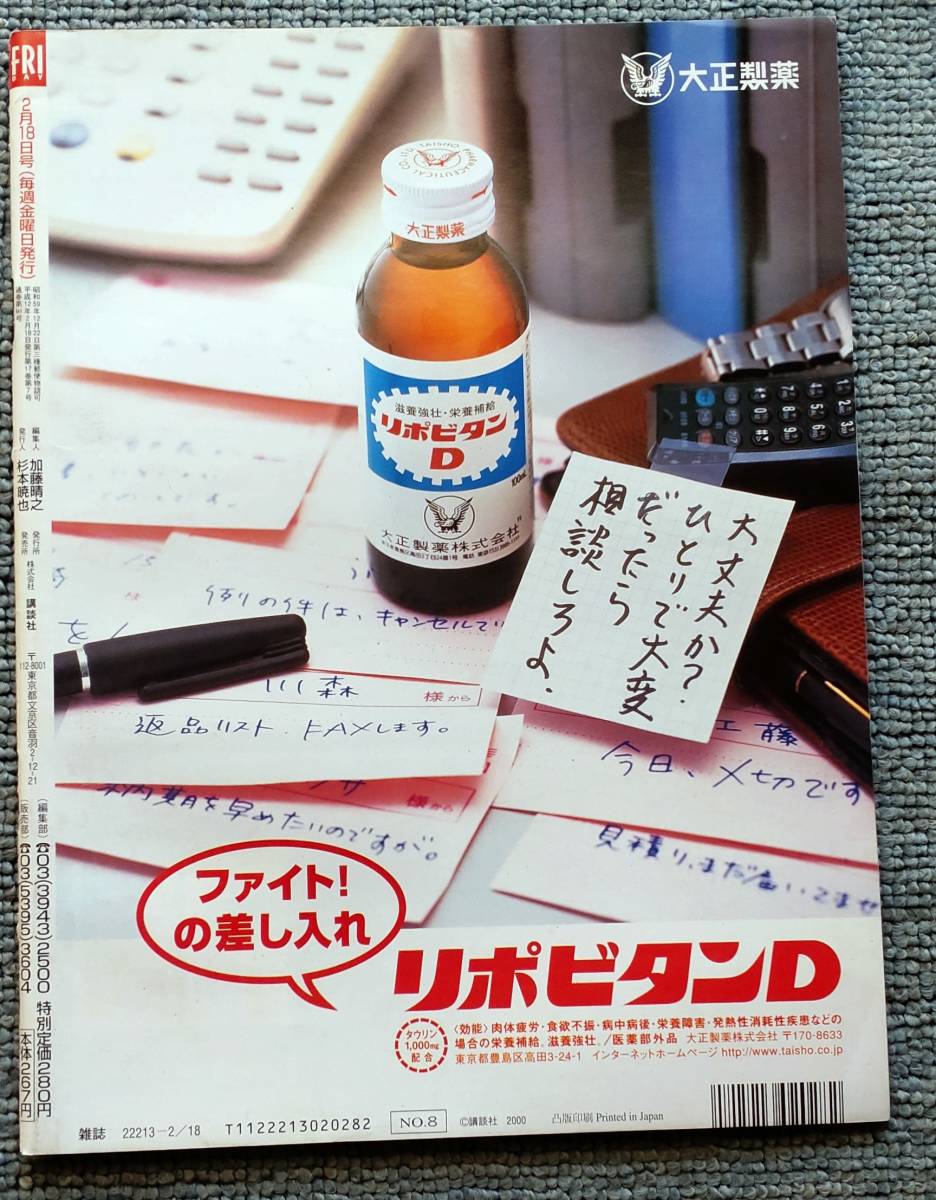 FRI
DAY
2月18日号(毎週金曜日発行)
昭和59年12月22日第三種郵便物認可
平成12年2月18日発行第17巻第7号
編集人 加藤晴之
発行人 杉本暁也
発行所
発売所
株式会社 講談社
〒112-8001
東京都文京区音羽2-12-21
(編集部)☎03(3943)2500
(販売部)☎03(5395)3604
特別定価280円
本体267円
大正製薬
TAISHO PHARMACEUTICAL CO., LTD.
大正製薬
滋養強壮・栄養補給
リポビタン
D
100mL
大正製薬株式会社
大丈夫か?
ひとりで大変
だったら
相談しろよ.
例の件は、キャンセルで
を
川森
様から
返品リスト FAXします。
様から
期を早めたいのですが。
工藤
今日、〆切です
見積り、まだ届いてませ
ファイト!
の差し入れ
リポビタンD
タウリン
1,000mg
配合
〈効能〉肉体疲労・食欲不振・病中病後・栄養障害・発熱性消耗性疾患などの
場合の栄養補給。滋養強壮。/医薬部外品 大正製薬株式会社 〒170-8633
東京都豊島区高田3-24-1 インターネットホームページ http://www.taisho.co.jp
雑誌 22213-2/18 T1122213020282 NO.8 ©講談社 2000 凸版印刷 Printed in Japan